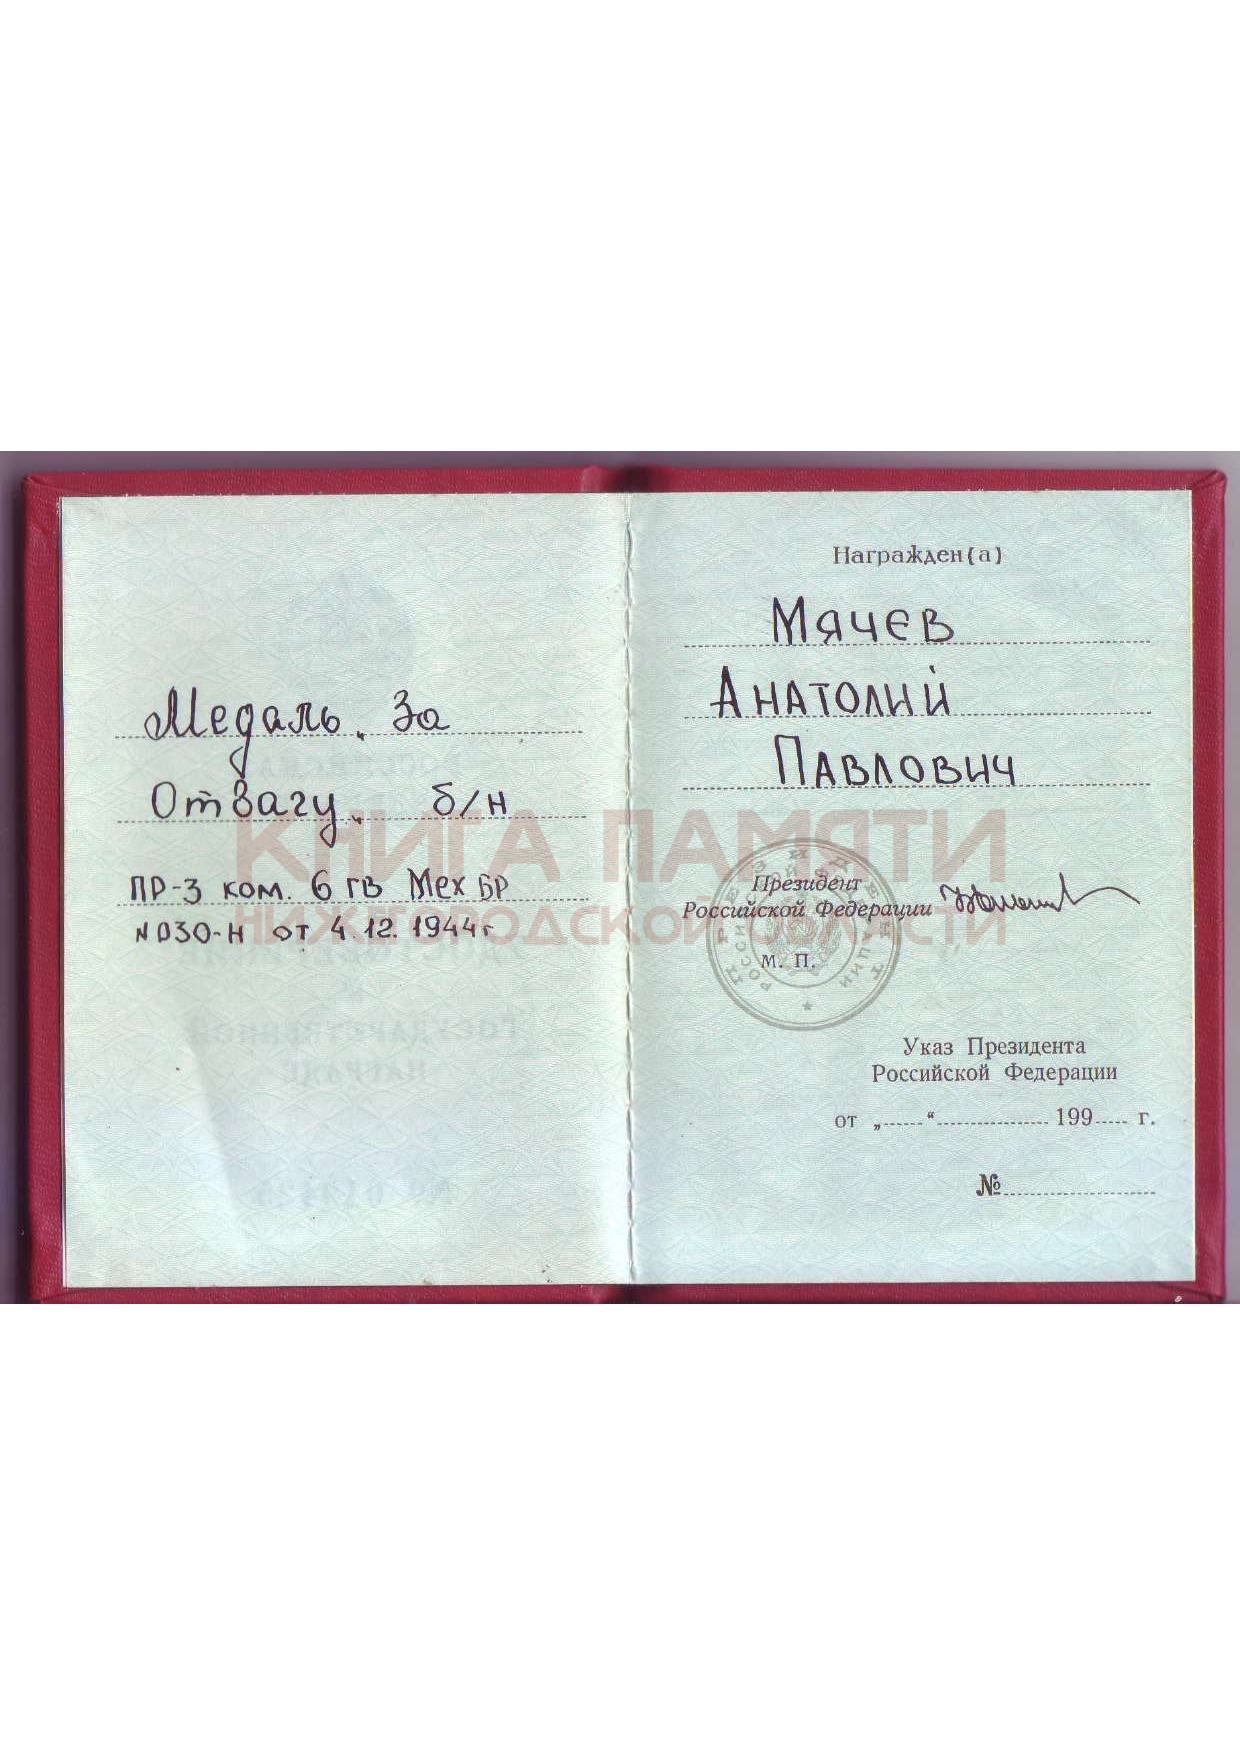 Медаль „За
Отвагу„ б/н
ПР-З ком. 6 гв Мех БР
№030-Н от 4.12.1944г
Награжден(а)
Мячев
Анатолий
Павлович
Президент
Российской Федерации
М. П.
ПРЕЗИДЕНТ
РОССИЙСКОЙ ФЕДЕРАЦИИ
Указ Президента
Российской Федерации
от „ “ 199 г.
№
КНИГА ПАМЯТИ
НИЖЕГОРОДСКОЙ ОБЛАСТИ